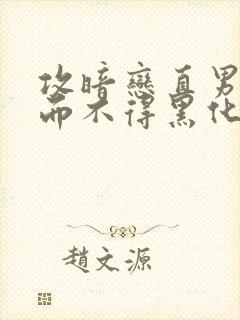 攻暗戀直男
而不得黑化
趙文源